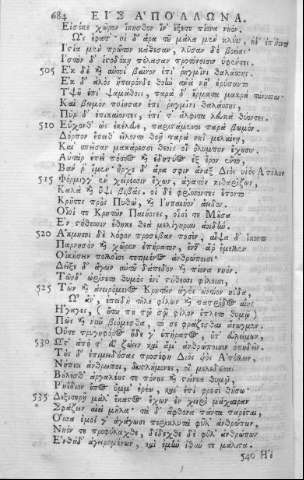 684 ΕΙΣ ΑΠΟΛΛΩΝΑ.
Εἰσόκε χῶρον ἵκησθον ἵν' ἕξετε πίονα νηόν.
Ὣς ἔφατ'· οἱ δ' ἄρα τοῦ μάλα μὲν κλύον, ἠδ' ἐπίθοντο
Ἱστία μὲν πρῶτον κάθεσαν, λῦσαν δὲ βοείας·
Ἱστὸν δ' ἱστοδόκῃ πέλασαν προτόνοισιν ὑφέντες.
505 Ἐκ δὲ καὶ αὐτοὶ βαῖνον ἐπὶ ῥηγμῖνι θαλάσσης.
Ἐκ δ' ἁλὸς ἤπειρόνδε θοὴν ἀνὰ νῆ' ἐρύσαντο
Ὑψοῦ ἐπὶ ψαμάθοις, παρὰ δ' ἕρματα μακρὰ τάνυσσαν·
Καὶ βωμὸν ποίησαν ἐπὶ ῥηγμῖνι θαλάσσης·
Πῦρ δ' ἐπικαίοντες, ἐπί τ' ἄλφιτα λευκὰ θύοντες.
510 Εὔχονθ' ὡς ἐκέλευε παριστάμενοι παρὰ βωμόν.
Δόρπον ἔπειθ' εἵλοντο θοῇ παρὰ νηῒ μελαίνῃ,
Καὶ σπεῖσαν μακάρεσσι θεοῖς οἳ ὄλυμπον ἔχουσι.
Αὐτὰρ ἐπεὶ πόσιος καὶ ἐδητύος ἐξ ἔρον ἕντο,
Βάν ῥ' ἴμεν· ἦρχε δ' ἄρα σφιν ἄναξ Διὸς υἱὸς Ἀπόλλων
515 Φόρμιγγ' ἐν χείρεσσιν ἔχων, ἀγατὸν κιθαρίζων,
Καλὰ καὶ ὕψι βιβάς. οἱ δὲ ἕποντο
Κρῆτες πρὸς Πυθὼ, καὶ Ἰηπαιήον' ἄειδον.
Οἷοί τε Κρητῶν Παιήονες, οἷσί τε Μοῦσα
Ἐν στήθεσσιν ἔθηκε θεὰ μελίγηρυν ἀοιδήν.
520 Ἄκμητοι δὲ λόφον προσέβαν ποσὶν, αἶψα δ' ἵκοντο
Παρνησὸν καὶ χῶρον ἐπήρατον, ἔνθ' ἄρ' ἔμελλεν
Οἰκήσειν πολλοῖσι τετιμένος ἀνθρώποισι·
Δεῖξε δ' ἄγων αὐτοῦ δάπεδον καὶ πίονα νηόν.
Τῶν δ' ὠρίνετο θυμὸς ἐνὶ στήθεσσι φίλοισι.
525 Τὸν καὶ ἀνειρόμενος Κρητῶν ἀγὸς ἀντίον ηὔδα,
Ὦ ἄν', ἐπειδὴ τῆλε φίλων καὶ πατρίδος αἴης
Ἤγαγες, (οὕτω που τῷ σῷ φίλον ἔπλετο θυμῷ)
Πῶς καὶ νῦν βιόμεσθα, τό σε φράζεσθαι ἄνωγμεν.
Οὔτε τρυγηφόρος ἥδε γ' ἐπήρατος, οὔτ' εὐλείμων,
530 Ὥς τ' ἀπό τ' εὖ ζώειν καὶ ἅμ' ἀνθρώποισιν ὀπηδεῖν.
Τοὺς δ' ἐπιμειδήσας προσέφη Διὸς υἱὸς Ἀπόλλων,
Νήπιοι ἄνθρωποι, δυστλήμονες, οἳ μελεδῶνας
Βούλεσθ' ἀργαλέους τε πόνους καὶ στείνεα θυμῷ·
Ῥηΐδιον ἔπος ὔμμ' ἐρέω, καὶ ἐπὶ φρεσὶ θήσω·
535 Δεξιτερῇ μάλ' ἕκαστος ἔχων ἐν χειρὶ μάχαιραν
Σφάζειν αἰεὶ μῆλα· τὰ δ' ἄφθονα πάντα παρέσται,
Ὅσσα ἐμοί γ' ἀγάγωσι περικλυτὰ φῦλ' ἀνθρώπων
Νηὸν δὲ προφύλαχθε, δέδεχθε δὲ φῦλ' ἀνθρώπων
Ἐνθάδ' ἀγειρομένων, καὶ ἐμὴν ἰθύν τε μάλιστα.
540 Ἠέ